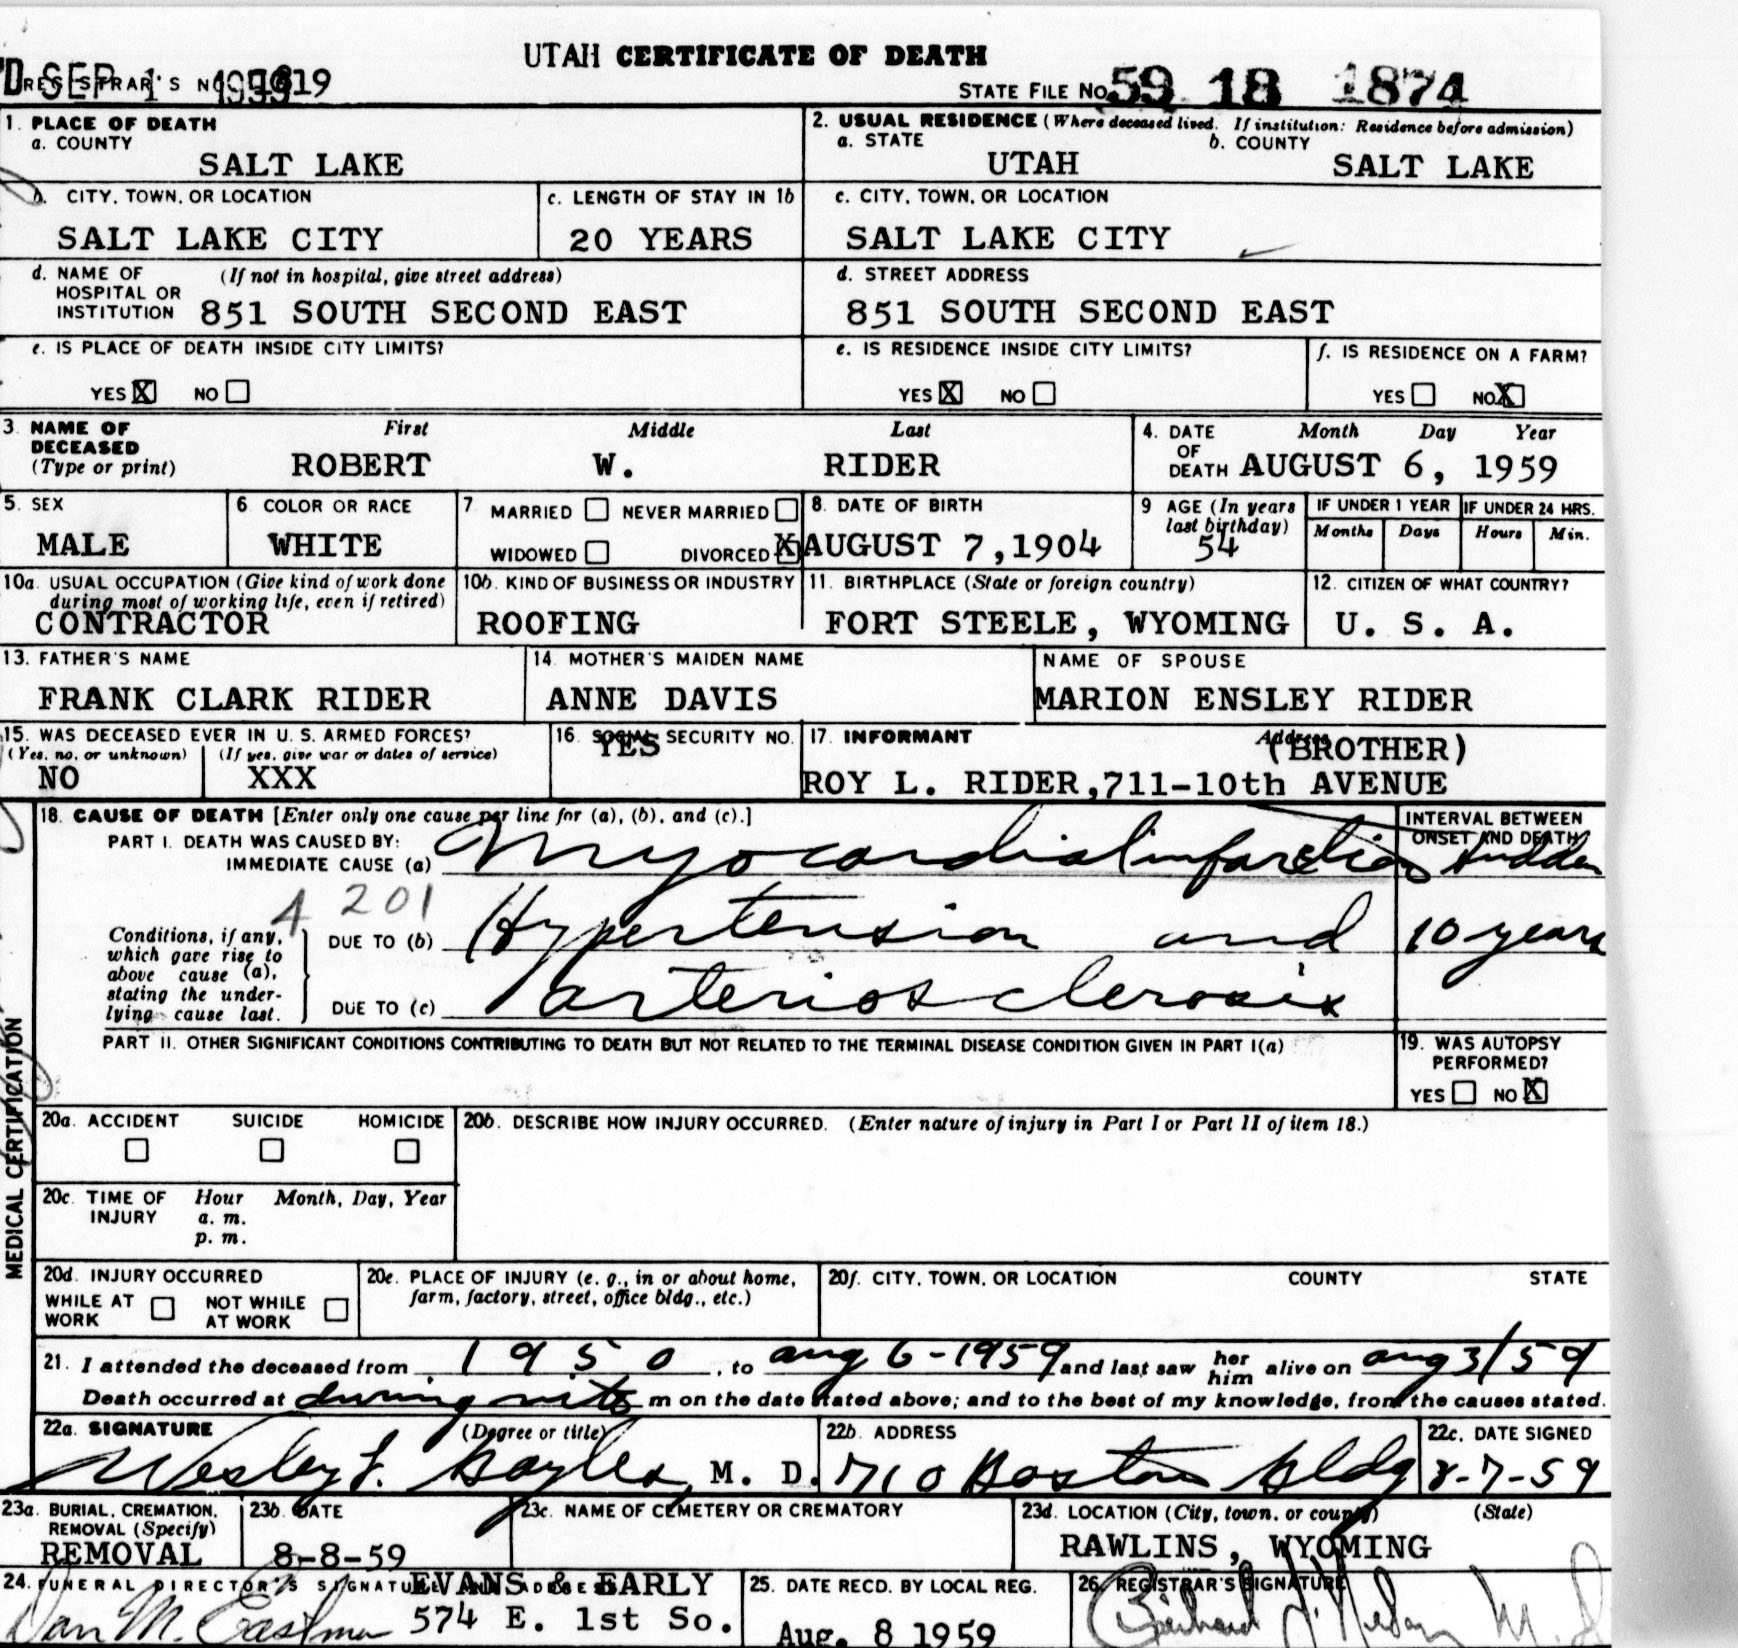 UTAH CERTIFICATE OF DEATH
REGISTRAR'S NO. 1619
SEP 1 1959
STATE FILE NO. 59 18 1874
1. PLACE OF DEATH
a. COUNTY
SALT LAKE
2. USUAL RESIDENCE (Where deceased lived. If institution: Residence before admission)
a. STATE b. COUNTY
UTAH SALT LAKE
b. CITY, TOWN, OR LOCATION
SALT LAKE CITY
c. LENGTH OF STAY IN 1b
20 YEARS
c. CITY, TOWN, OR LOCATION
SALT LAKE CITY
d. NAME OF HOSPITAL OR INSTITUTION (If not in hospital, give street address)
851 SOUTH SECOND EAST
d. STREET ADDRESS
851 SOUTH SECOND EAST
e. IS PLACE OF DEATH INSIDE CITY LIMITS?
YES X NO
e. IS RESIDENCE INSIDE CITY LIMITS?
YES X NO
f. IS RESIDENCE ON A FARM?
YES NO X
3. NAME OF DECEASED (Type or print)
First Middle Last
ROBERT W. RIDER
4. DATE OF DEATH Month Day Year
AUGUST 6, 1959
5. SEX
MALE
6. COLOR OR RACE
WHITE
7. MARRIED NEVER MARRIED
WIDOWED DIVORCED X
8. DATE OF BIRTH
AUGUST 7,1904
9. AGE (In years last birthday)
54
IF UNDER 1 YEAR
Months Days
IF UNDER 24 HRS.
Hours Min.
10a. USUAL OCCUPATION (Give kind of work done during most of working life, even if retired)
CONTRACTOR
10b. KIND OF BUSINESS OR INDUSTRY
ROOFING
11. BIRTHPLACE (State or foreign country)
FORT STEELE, WYOMING
12. CITIZEN OF WHAT COUNTRY?
U. S. A.
13. FATHER'S NAME
FRANK CLARK RIDER
14. MOTHER'S MAIDEN NAME
ANNE DAVIS
NAME OF SPOUSE
MARION ENSLEY RIDER
15. WAS DECEASED EVER IN U. S. ARMED FORCES?
(Yes, no, or unknown) (If yes, give war or dates of service)
NO XXX
16. SOCIAL SECURITY NO.
YES
17. INFORMANT Address
(BROTHER)
ROY L. RIDER,711-10th AVENUE
MEDICAL CERTIFICATION
18. CAUSE OF DEATH [Enter only one cause per line for (a), (b), and (c).]
PART I. DEATH WAS CAUSED BY:
IMMEDIATE CAUSE (a) Myocardial infarction
INTERVAL BETWEEN ONSET AND DEATH
sudden
4201
Conditions, if any, which gave rise to above cause (a), stating the underlying cause last.
DUE TO (b) Hypertension and
10 years
DUE TO (c) arteriosclerosis
PART II. OTHER SIGNIFICANT CONDITIONS CONTRIBUTING TO DEATH BUT NOT RELATED TO THE TERMINAL DISEASE CONDITION GIVEN IN PART I(a)
19. WAS AUTOPSY PERFORMED?
YES NO X
20a. ACCIDENT SUICIDE HOMICIDE
20b. DESCRIBE HOW INJURY OCCURRED. (Enter nature of injury in Part I or Part II of item 18.)
20c. TIME OF INJURY Hour Month, Day, Year
a. m.
p. m.
20d. INJURY OCCURRED
WHILE AT WORK NOT WHILE AT WORK
20e. PLACE OF INJURY (e. g., in or about home, farm, factory, street, office bldg., etc.)
20f. CITY, TOWN, OR LOCATION COUNTY STATE
21. I attended the deceased from 1950, to Aug 6-1959 and last saw her him alive on Aug 3/59
Death occurred at during nite m on the date stated above; and to the best of my knowledge, from the causes stated.
22a. SIGNATURE (Degree or title)
Wesley F. M. D.
22b. ADDRESS
710 Boston Bldg
22c. DATE SIGNED
8-7-59
23a. BURIAL, CREMATION, REMOVAL (Specify)
REMOVAL
23b. DATE
8-8-59
23c. NAME OF CEMETERY OR CREMATORY
23d. LOCATION (City, town, or county) (State)
RAWLINS, WYOMING
24. FUNERAL DIRECTOR'S SIGNATURE AND ADDRESS
EVANS & EARLY
Dan M. Eastman 574 E. 1st So.
25. DATE RECD. BY LOCAL REG.
Aug. 8 1959
26. REGISTRAR'S SIGNATURE